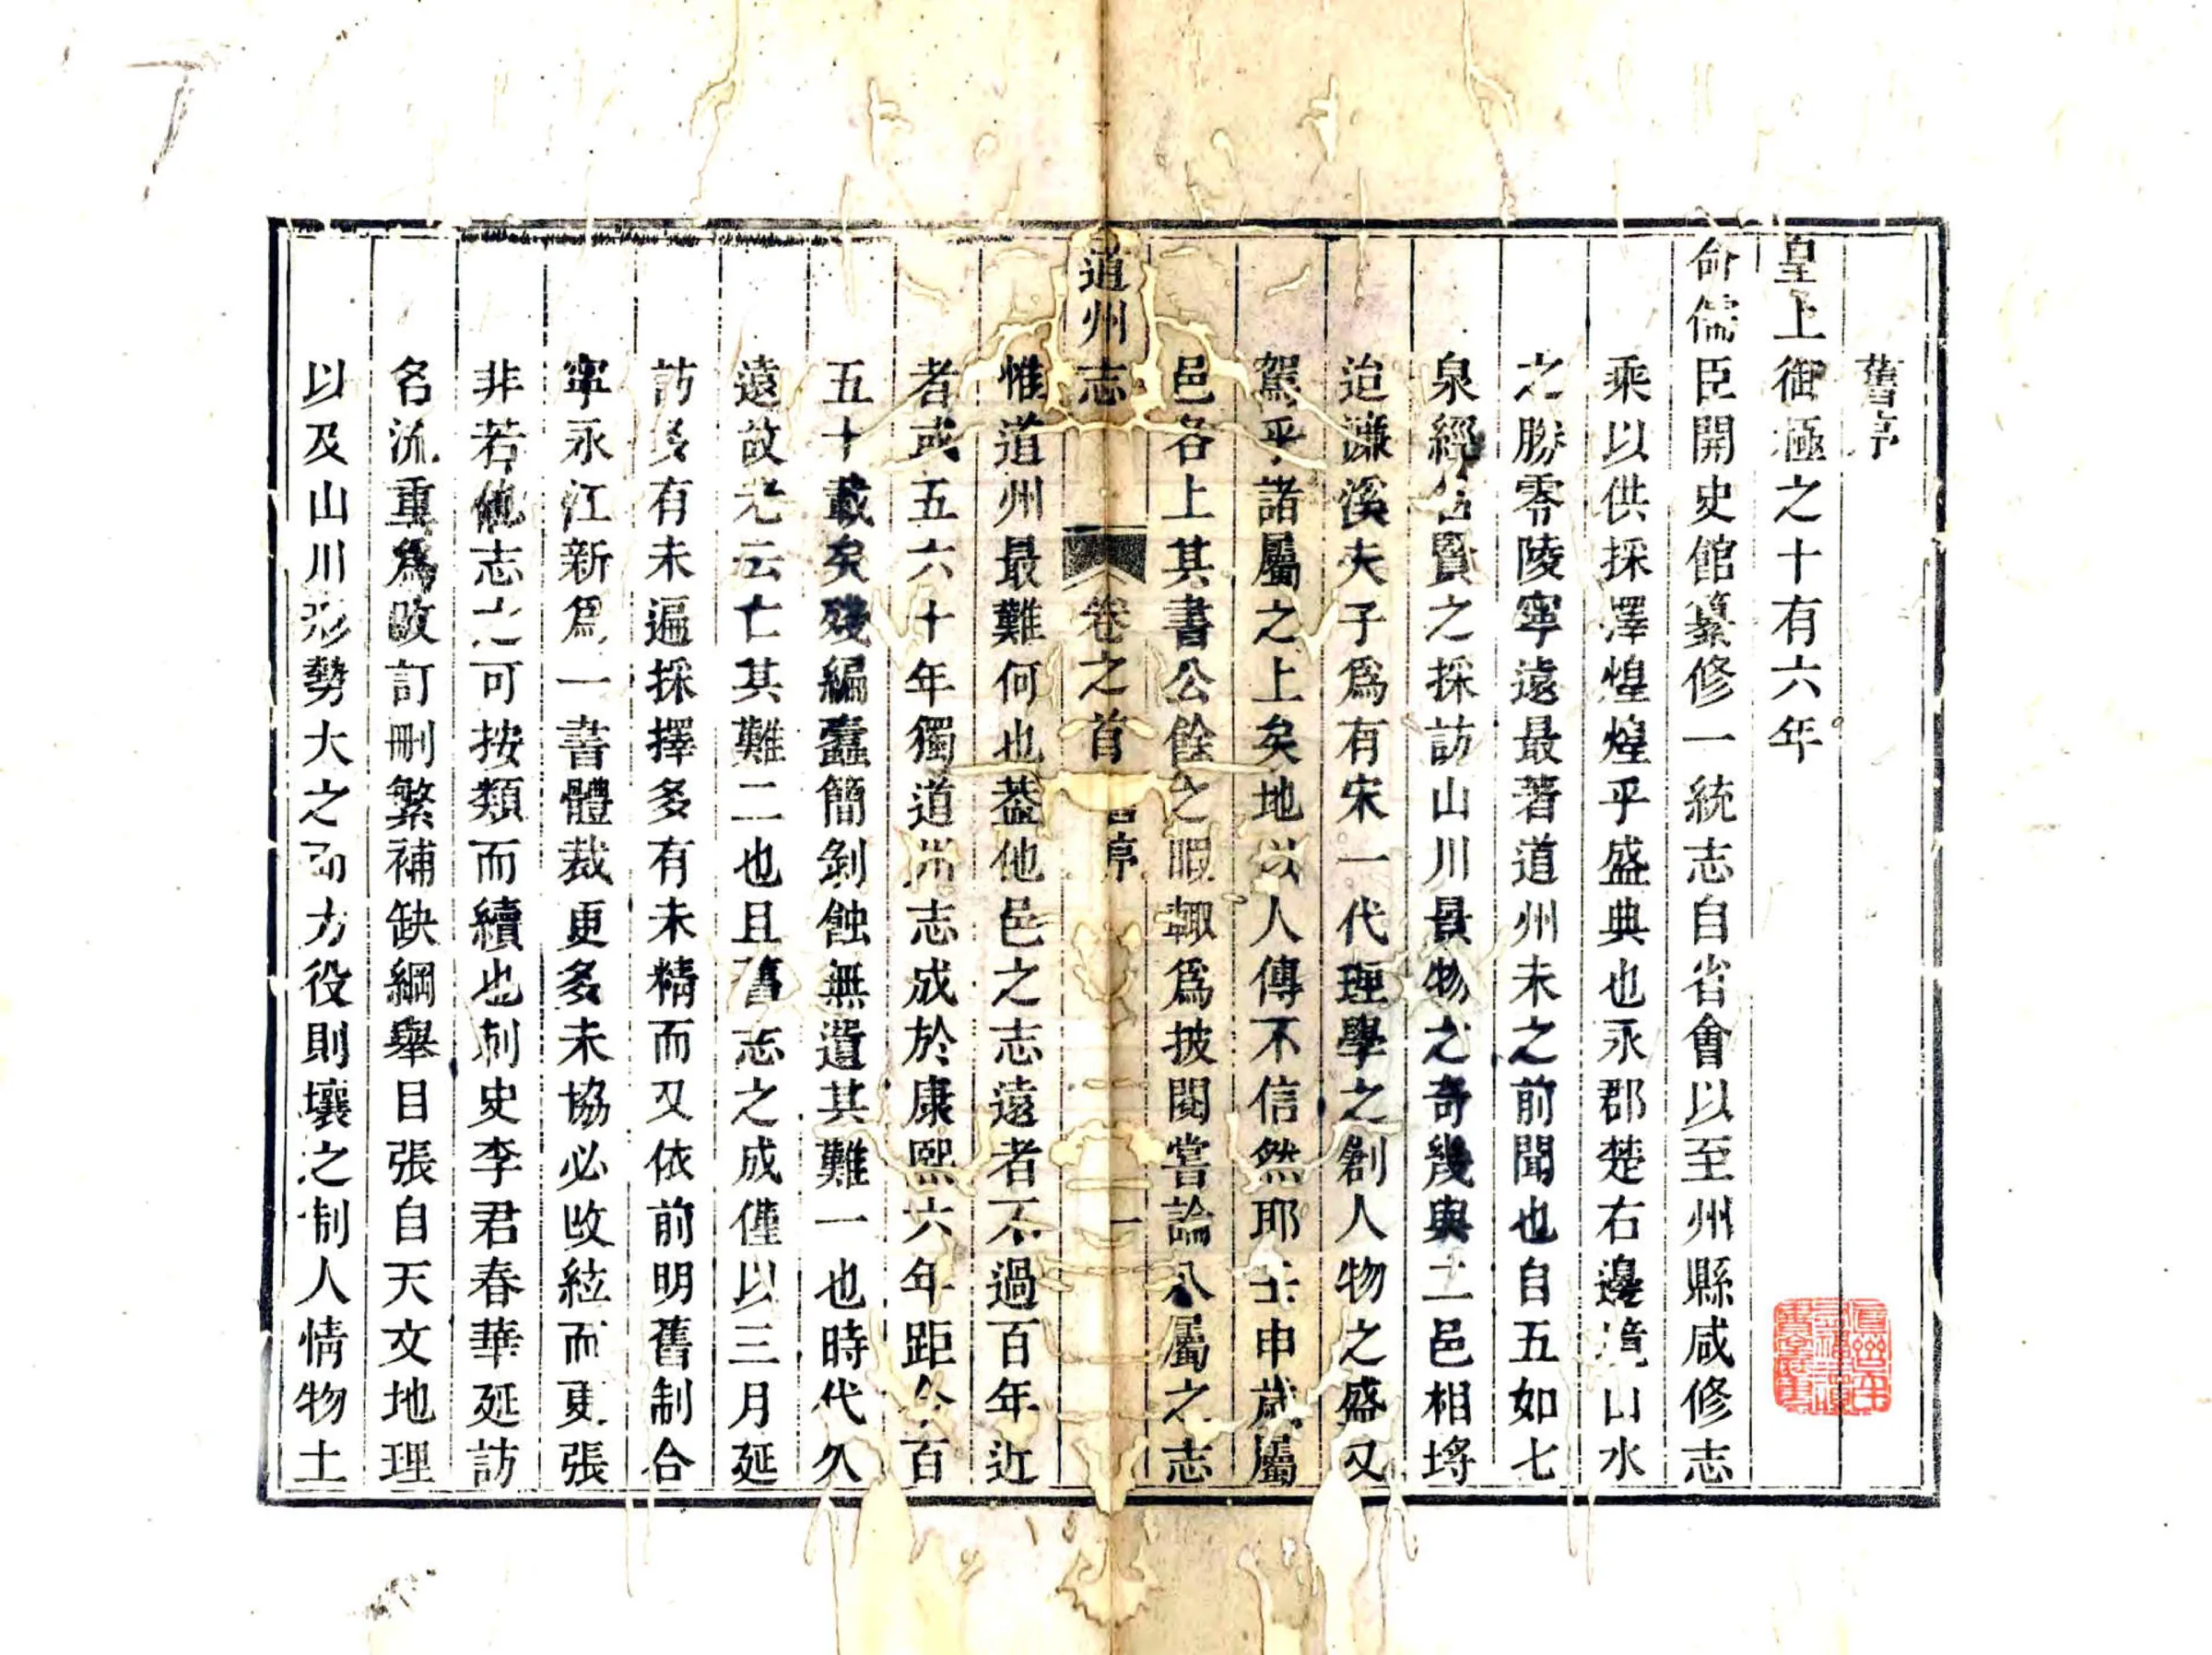 舊序
皇上御極之十有六年
命儒臣開史館纂修一統志自省會以至州縣咸修志
乘以供採擇煌煌乎盛典也永郡楚右邊境山水
之勝零陵寧遠最著道州未之前聞也自五如七
泉經名賢之採訪山川景物之奇幾與二邑相埒
迨濂溪夫子爲有宋一代理學之創人物之盛又
駕乎諸屬之上矣地以人傳不信然耶壬申歲屬
邑各上其書公餘之暇輙爲披閱嘗論八屬之志
道州志 卷之首 舊序 一
惟道州最難何也葢他邑之志遠者不過百年近
者或五六十年獨道州志成於康熙六年距今百
五十載矣殘編蠹簡剝蝕無遺其難一也時代久
遠故老云亡其難二也且舊志之成僅以三月延
訪多有未遍採擇多有未精而又依前明舊制合
寧永江新爲一書體裁更多未協必改絃而更張
非若他志之可按類而續也刺史李君春華延訪
名流重爲改訂刪繁補缺綱舉目張自天文地理
以及山川形勢大之而力役則壤之制人情物土